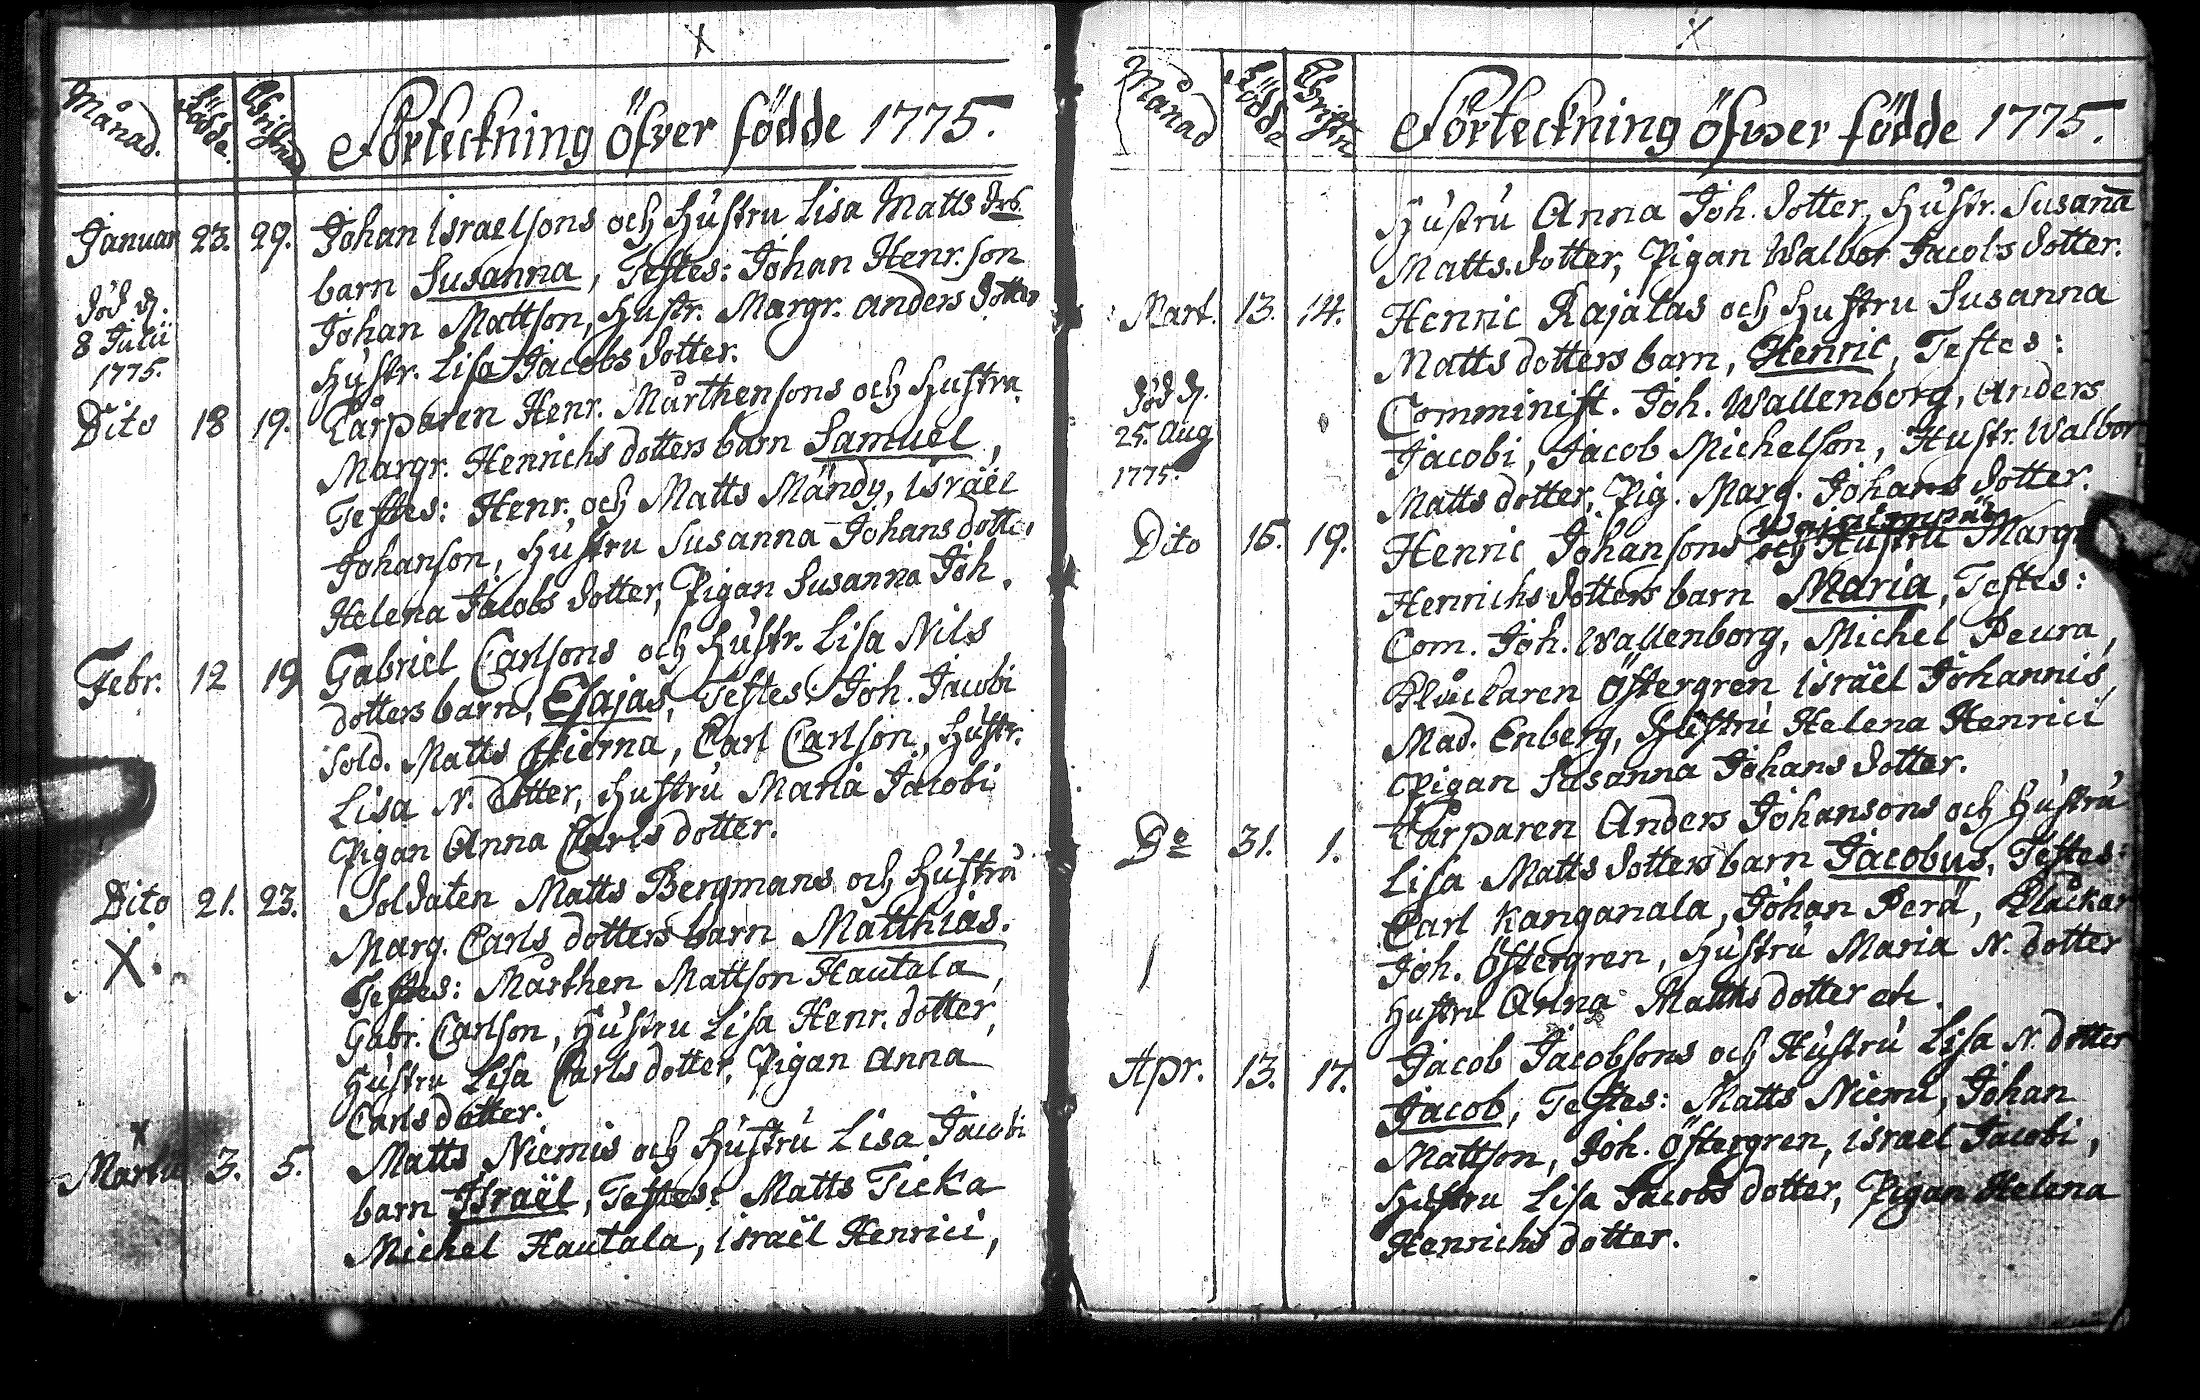 X
Månad. Födde. Christnad Förteckning öfver födde 1775.
Januari 23. 29. Johan Israelsons och Hustru Lisa Matts dr
barn Susanna, Testes: Johan Henr.son
död d. Johan Mattson, Hustr. Margr. Anders dotter
8 Julii Hustr. Lisa Jacobs dotter.
1775.
Dito 18 19. Torparen Henr. Mårthensons och Hustru
Margr. Henrichs dotters barn Samuel,
Testes: Henr. och Matts Mändy, Israël
Johanson, Hustru Susanna Johans dotter
Helena Jacobs dotter, Pigan Susanna Joh.
Febr. 12 19 Gabriel Carlsons och Hustr. Lisa Nils
dotters barn, Esajas, Testes: Joh. Jacobi
Sold. Matts Hierna, Carl Carlson, Hustr.
Lisa N. dotter, Hustru Maria Jacobi
Pigan Anna Carls dotter.
Dito 21. 23. Soldaten Matts Bergmans och Hustru
X. Marg. Carls dotters barn Matthias.
Testes: Mårthen Mattson Hautala,
Gabr. Carlson, Hustru Lisa Henr. dotter,
Hustru Lisa Carls dotter, Pigan Anna
Carls dotter.
x
Martii 3. 5. Matts Niemis och Hustru Lisa Jacobi
barn Israël, Testes: Matts Ticka
Michel Hautala, Israël Henrici,
X
Månad Födde Christn Förteckning öfwer födde 1775.
Hustru Anna Joh. dotter, Hustr. Susana
Matts. dotter, Pigan Walbor Jacobs dotter.
Mart. 13. 14. Henric Rajalas och Hustru Susanna
Matts dotters barn, Henric, Testes:
död d. Comminist. Joh. Wallenborg, Anders
25. Aug Jacobi, Jacob Michelson, Hustr. Walbor
1775. Matts dotter, Pig. Marg. Johans dotter.
Dito 15. 19. Henric Johansons och Hustru Margr
Henrichs dotters barn Maria, Testes:
Com. Joh. Wallenborg, Michel Peura,
Klåckaren Östergren Israël Johannis,
Mad. Enberg, Hustru Helena Henrici
Pigan Susanna Johans dotter.
Do 31. 1. Torparen Anders Johansons och Hustru
Lisa Matts dotters barn Jacobus, Testes:
Carl Kanganala, Johan Perä, Klåckar
Joh. Östergren, Hustru Maria N. dotter
Hustru Anna Matths dotter etc.
Apr. 13. 17. Jacob Jacobsons och Hustru Lisa N. dotter
Jacob, Testes: Matts Niemi, Johan
Mattson, Joh. Östergren, Israel Jacobi,
Hustru Lisa Jacobs dotter, Pigan Helena
Henrichs dotter.